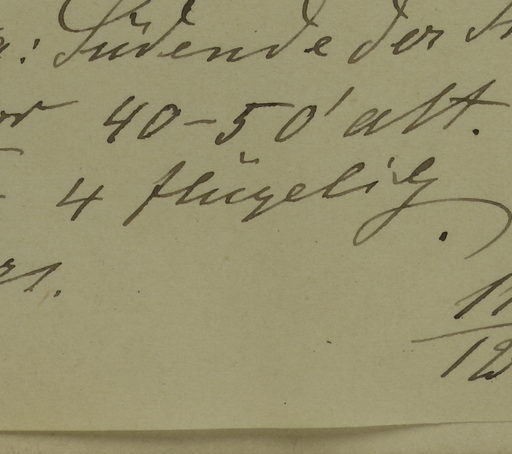 : Südende der
40-50' alt.
4 flügelig.
rs.
11
12